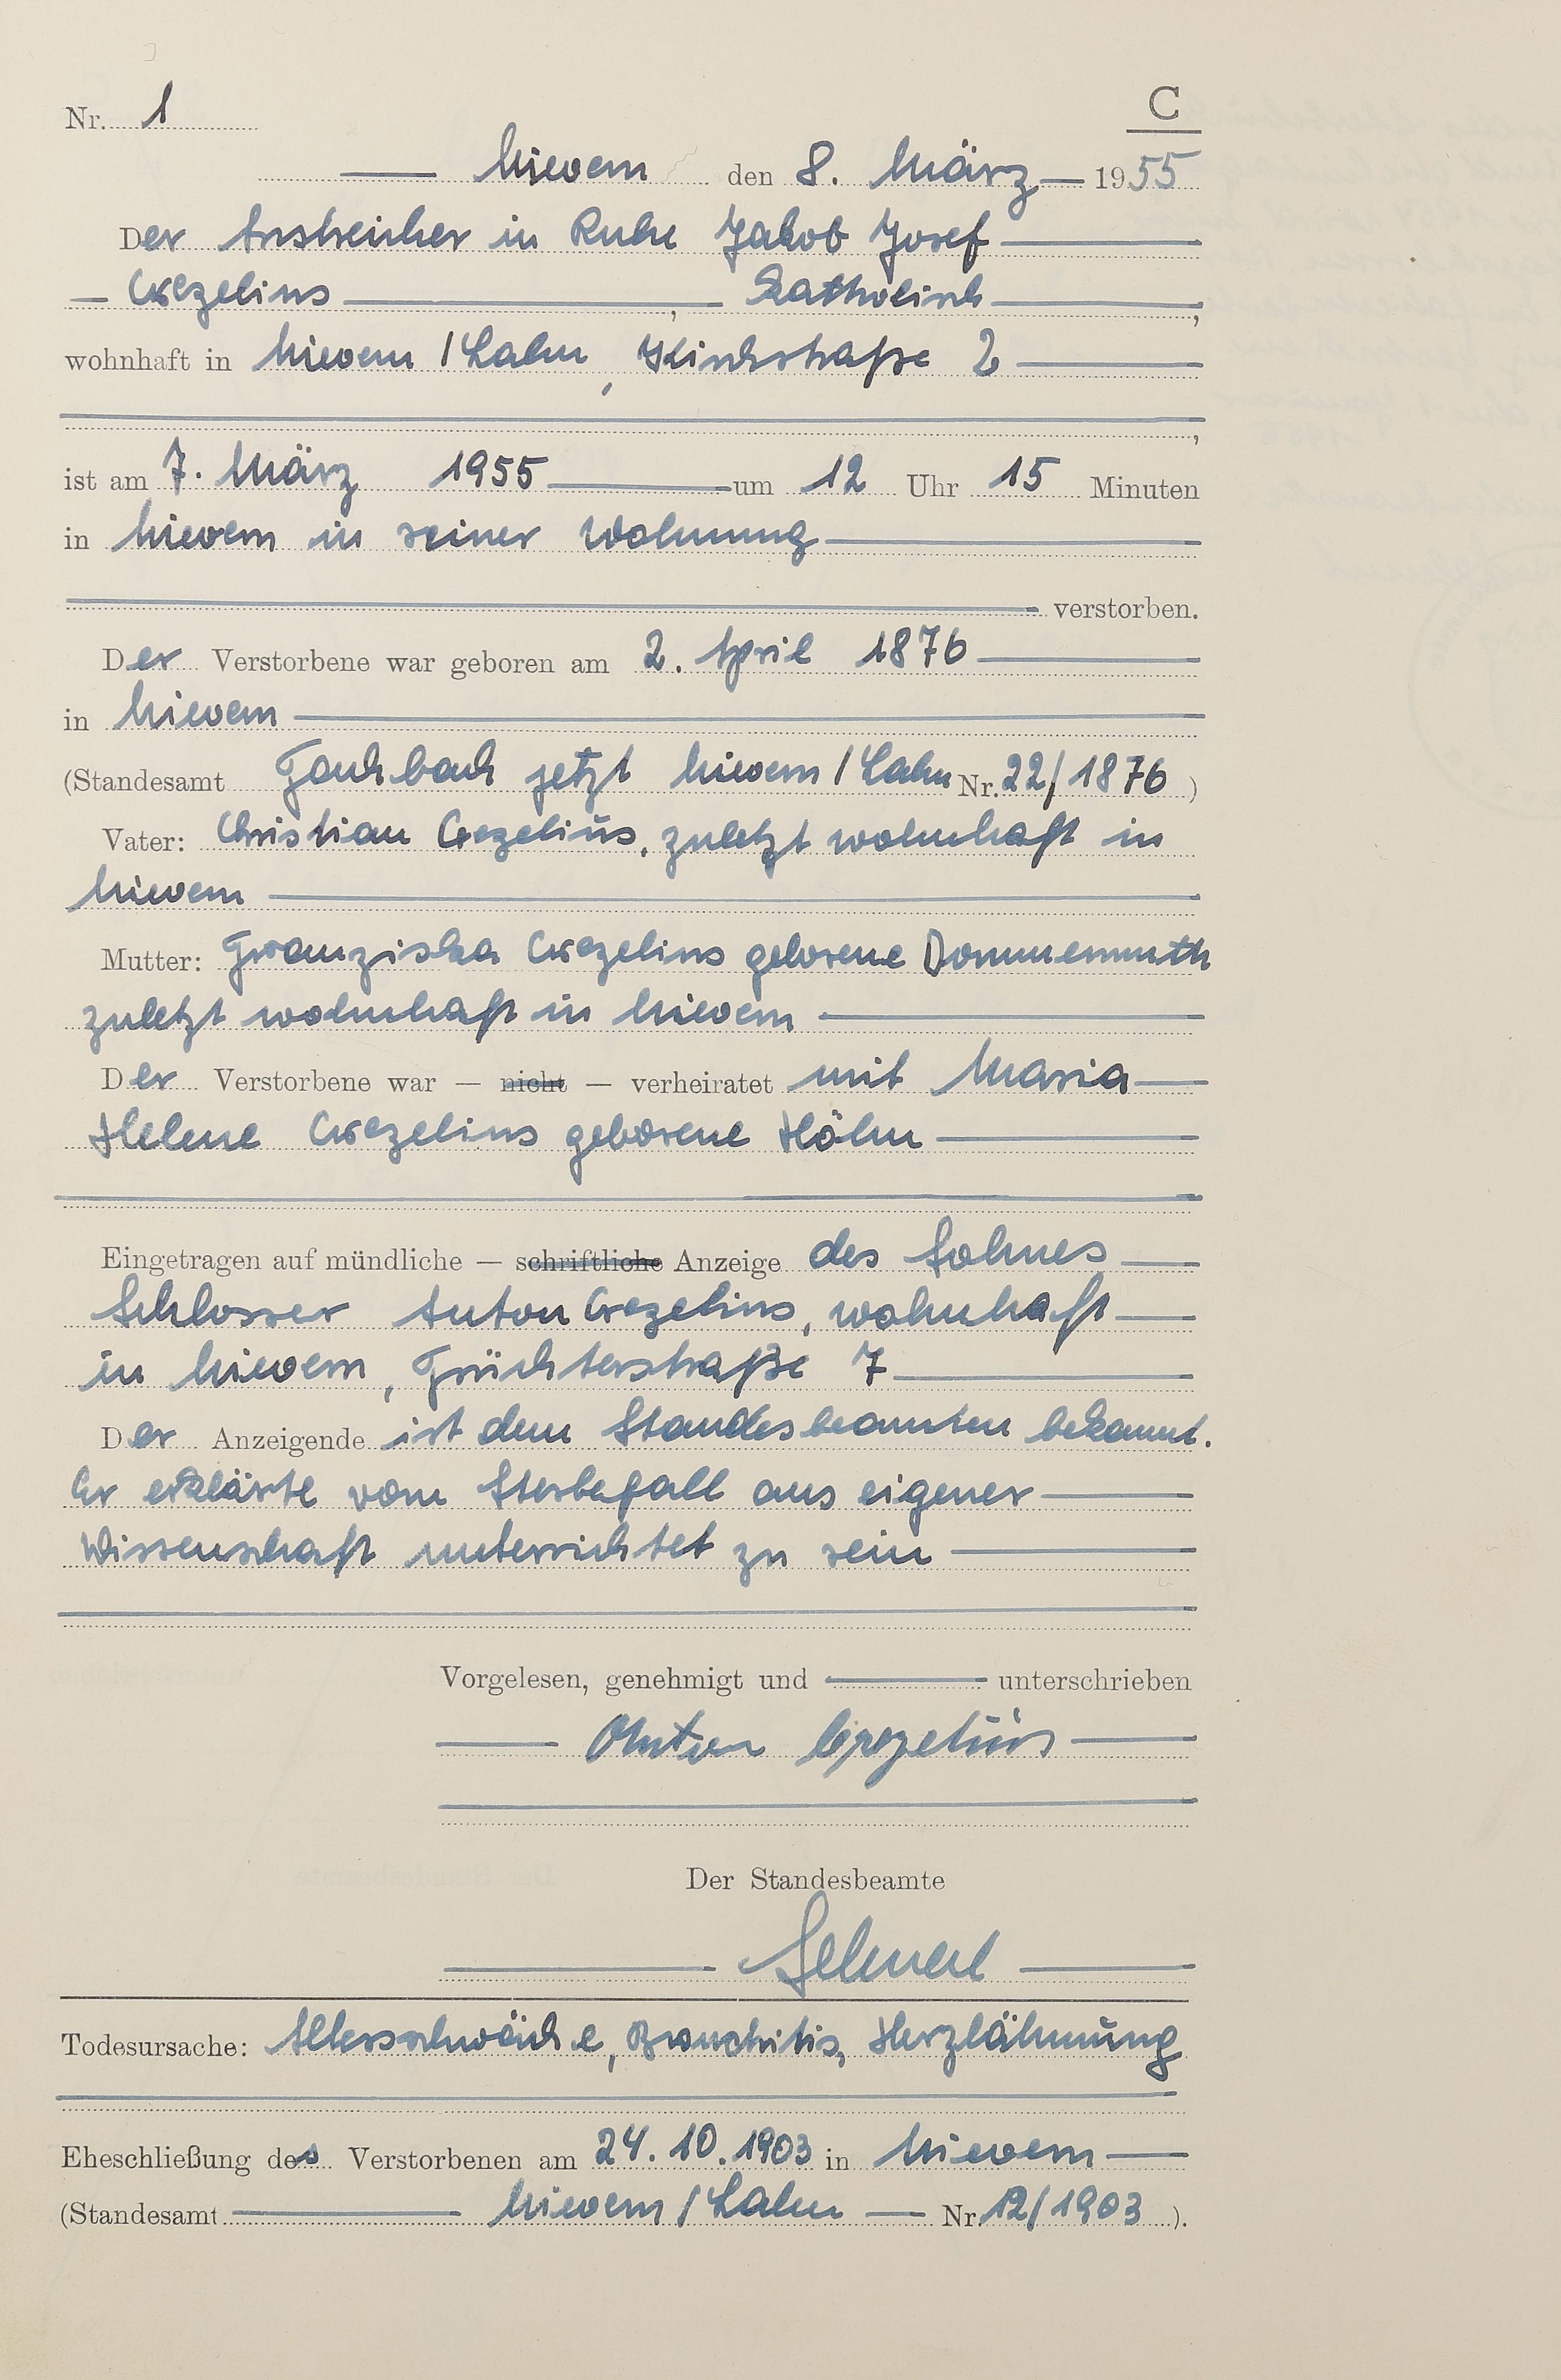 Nr. 1
C
Mievern den 8. März 1955
Der Anstreicher in Ruhe Jakob Josef
Crezelius, katholisch,
wohnhaft in Nievern / Lahn, Kirchstraße 2
,
ist am 7. März 1955 um 12 Uhr 15 Minuten
in Nievern in seiner Wohnung
verstorben.
Der Verstorbene war geboren am 2. April 1876
in Nievern
(Standesamt Fachbach jetzt Nievern / Lahn Nr. 22/1876)
Vater: Christian Crezelius, zuletzt wohnhaft in
Nievern
Mutter: Franziska Crezelius geborene Dommermuth
zuletzt wohnhaft in Nievern
Der Verstorbene war — nicht — verheiratet mit Maria
Helene Crezelius geborene Höhn
Eingetragen auf mündliche — schriftliche Anzeige des Sohnes
Schlosser Anton Crezelius, wohnhaft
in Nievern, Früchterstraße 7
Der Anzeigende ist dem Standesbeamten bekannt.
Er erklärte vom Sterbefall aus eigener
Wissenschaft unterrichtet zu sein
Vorgelesen, genehmigt und unterschrieben
Anton Crezelius
Der Standesbeamte
Todesursache: Altersschwäche, Bronchitis, Herzlähmung
Eheschließung des Verstorbenen am 24.10.1903 in Nievern
(Standesamt Nievern / Lahn Nr. 12/1903).